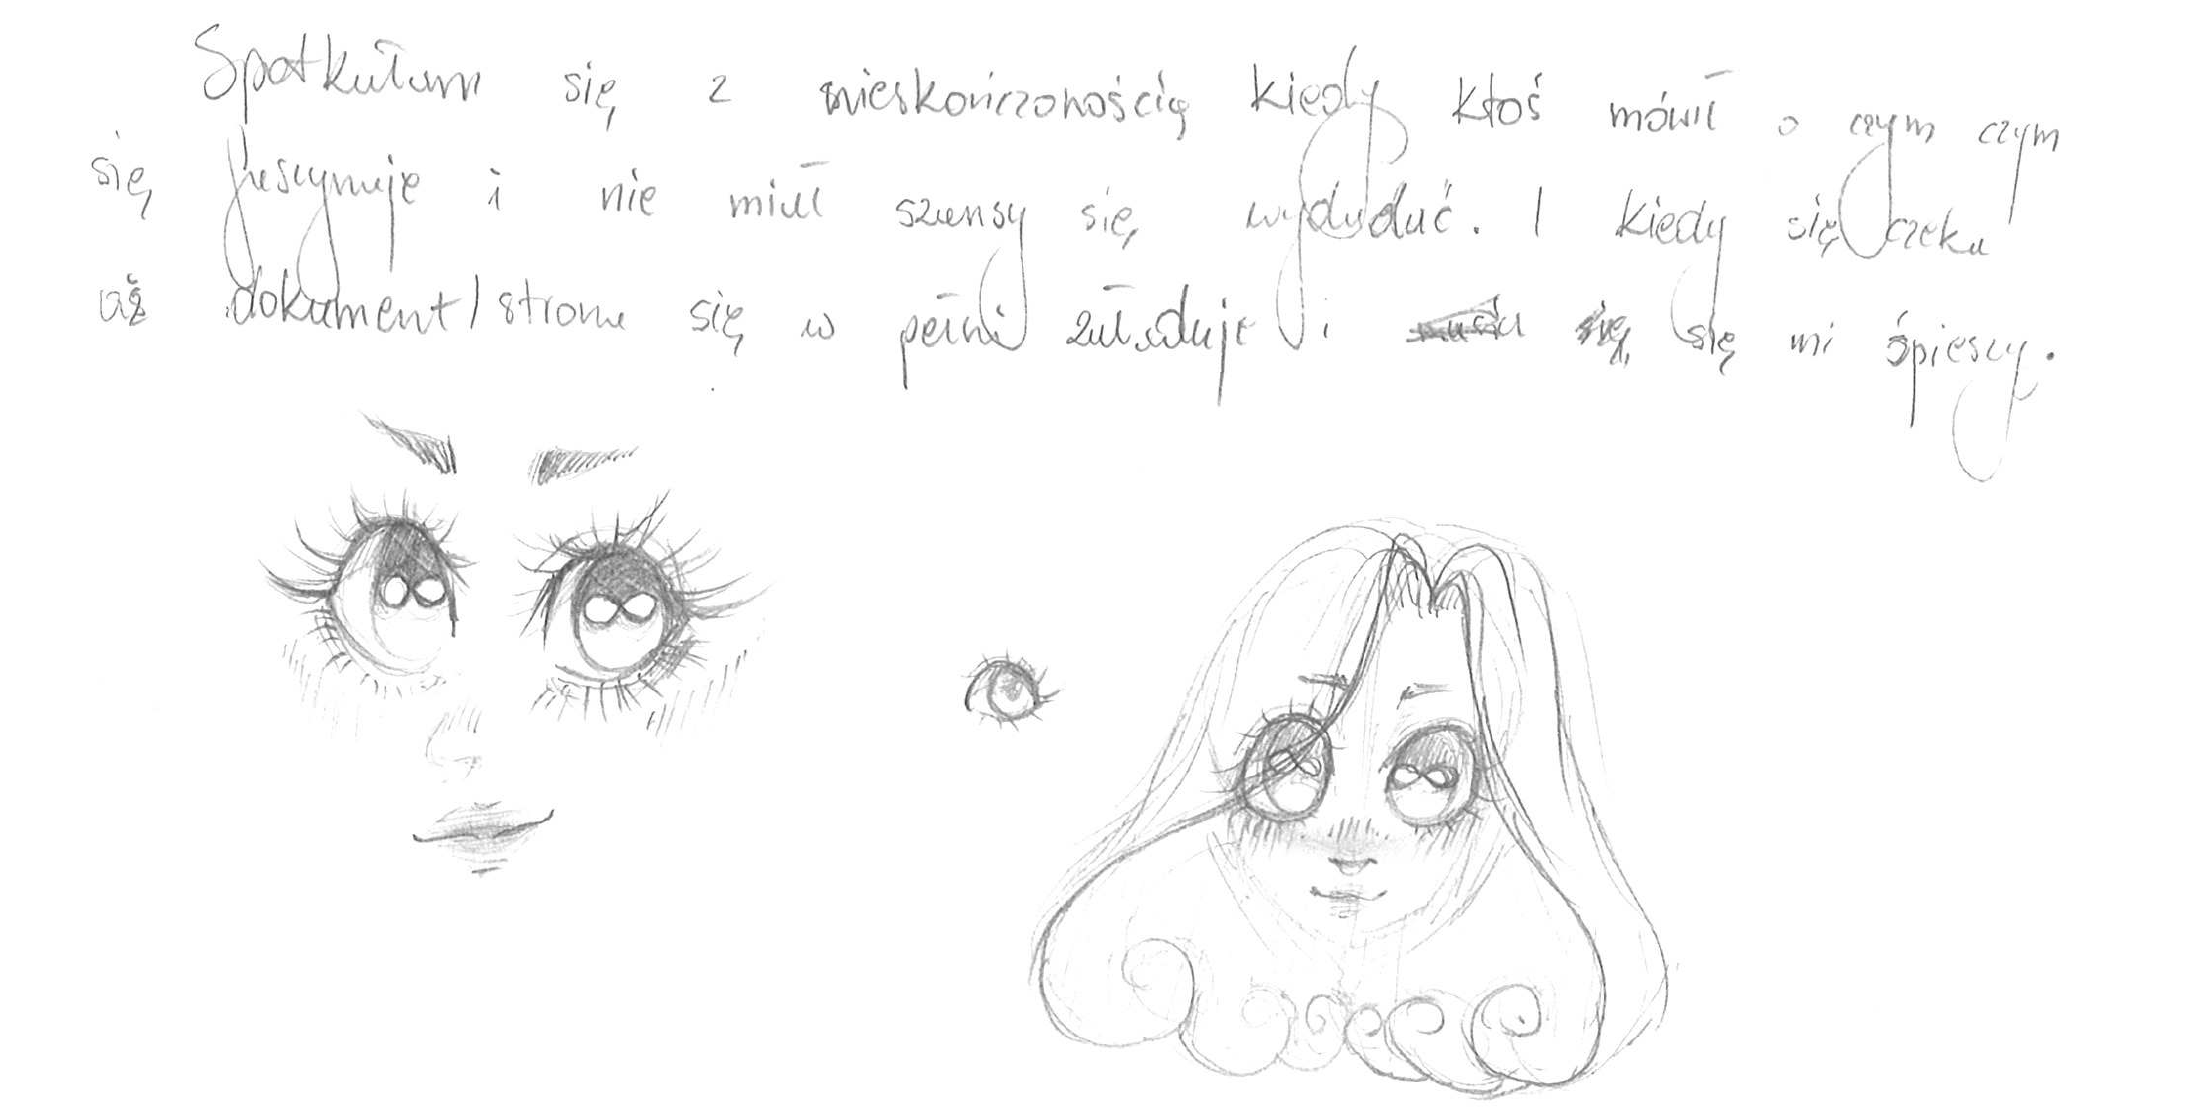 Spotkałam się z nieskończonością kiedy ktoś mówił o czym czym
się fascynuje i nie miał szansy się wygadać. I kiedy się czeka
aż dokument/strona się w pełni załaduje i się się mi śpieszy.